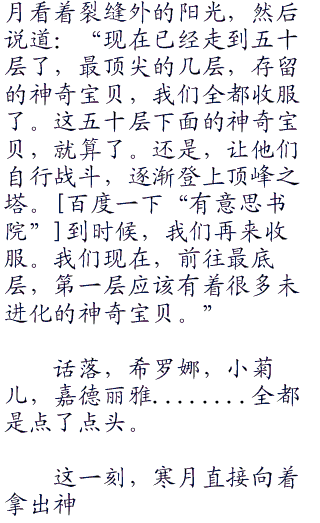 月看着裂缝外的阳光，然后
说道：“现在已经走到五十
层了，最顶尖的几层，存留
的神奇宝贝，我们全都收服
了。这五十层下面的神奇宝
贝，就算了。还是，让他们
自行战斗，逐渐登上顶峰之
塔。[百度一下“有意思书
院”]到时候，我们再来收
服。我们现在，前往最底
层，第一层应该有着很多未
进化的神奇宝贝。”
话落，希罗娜，小菊
儿，嘉德丽雅........全都
是点了点头。
这一刻，寒月直接向着
拿出神